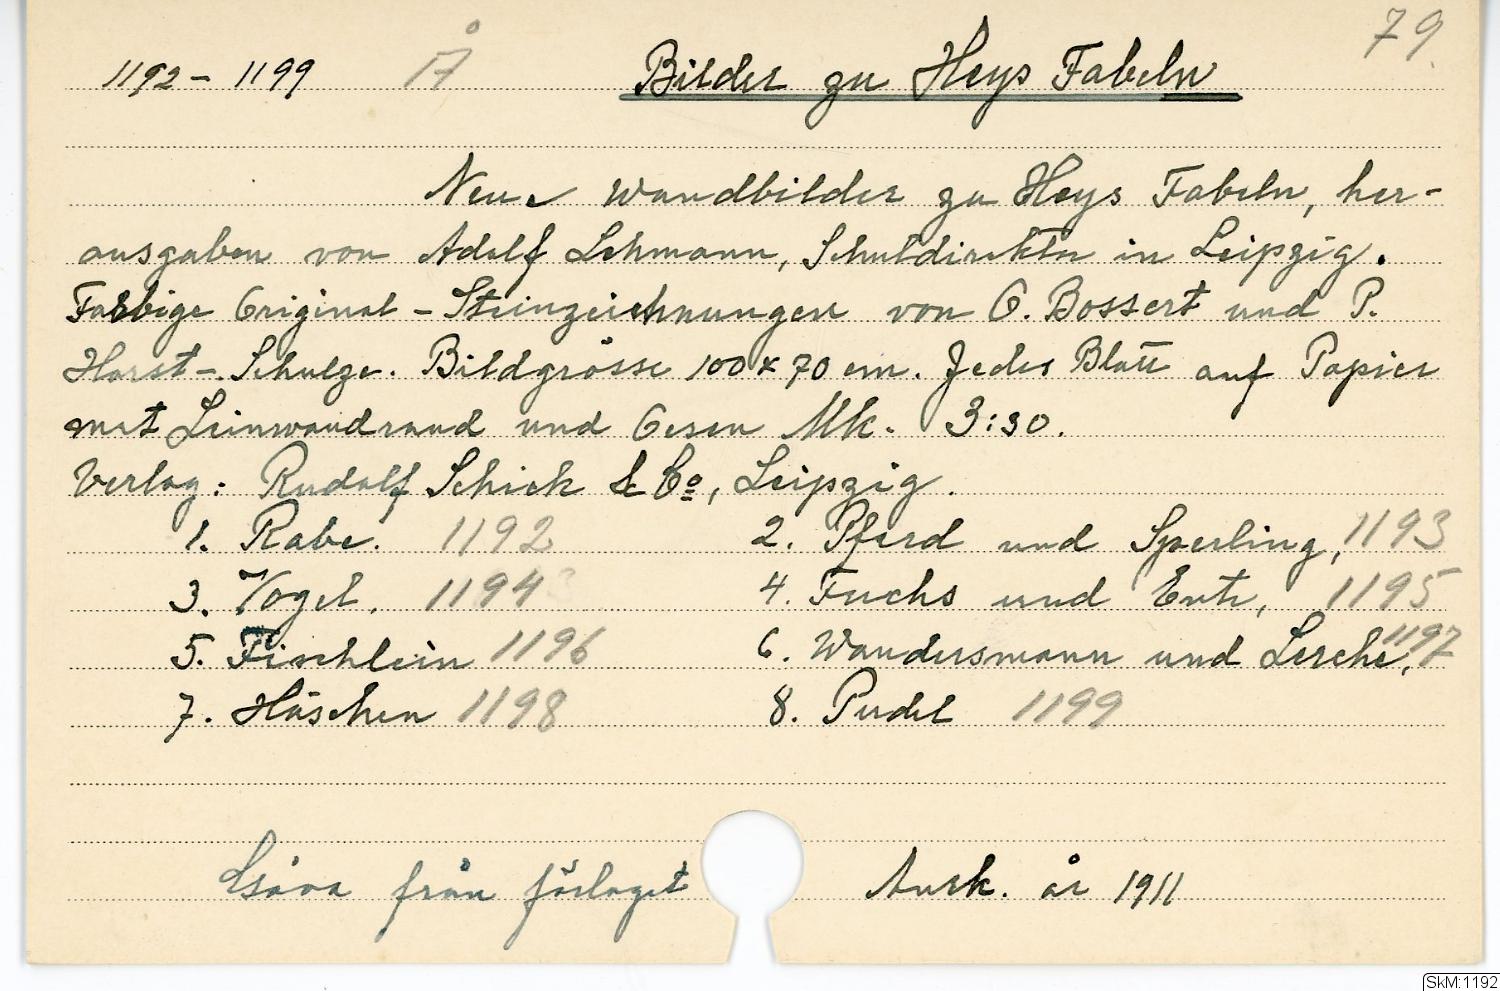 1192 - 1199 Å Bilder zu Heys Fabeln 79.
Neue Wandbilder zu Heys Fabeln, her-
ausgaben von Adolf Lehmann, Schuldirektor in Leipzig.
Farbige Original - Steinzeichnungen von O. Bossert und P.
Horst - Schulze. Bildgrösse 100 x 70 cm. Jedes Blatt auf Papier
met Leinwandrand und Oesen Mk. 3:30.
Verlag: Rudolf Schick & Co, Leipzig.
1. Rabe. 1192 2. Pferd und Sperling, 1193
3. Vogel. 1194 4. Fuchs und Ente, 1195
5. Fischlein 1196 6. Wandersmann und Lerche, 1197
7. Häschen 1198 8. Pudel 1199
Gåva från förlaget Ank. år 1911
SkM:1192